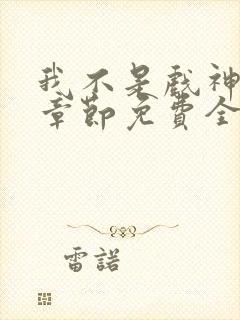 我不是戲神
章節免費全
雷諾